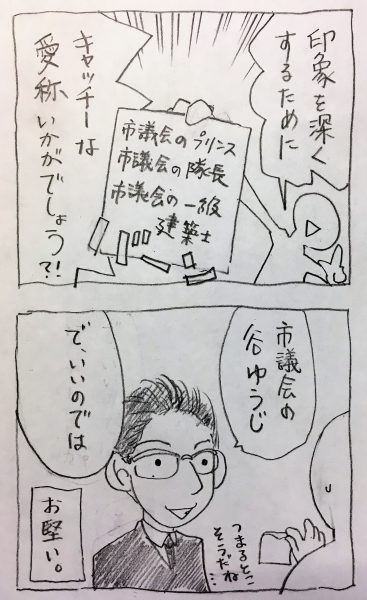 印象を深く
するために
キャッチーな
愛称いかがでしょう?!
市議会のプリンス
市議会の隊長
市議会の一級
建築士
市議会の
谷ゆうじ
で、いいのでは
つまるとこ
そうだね…
お堅い。